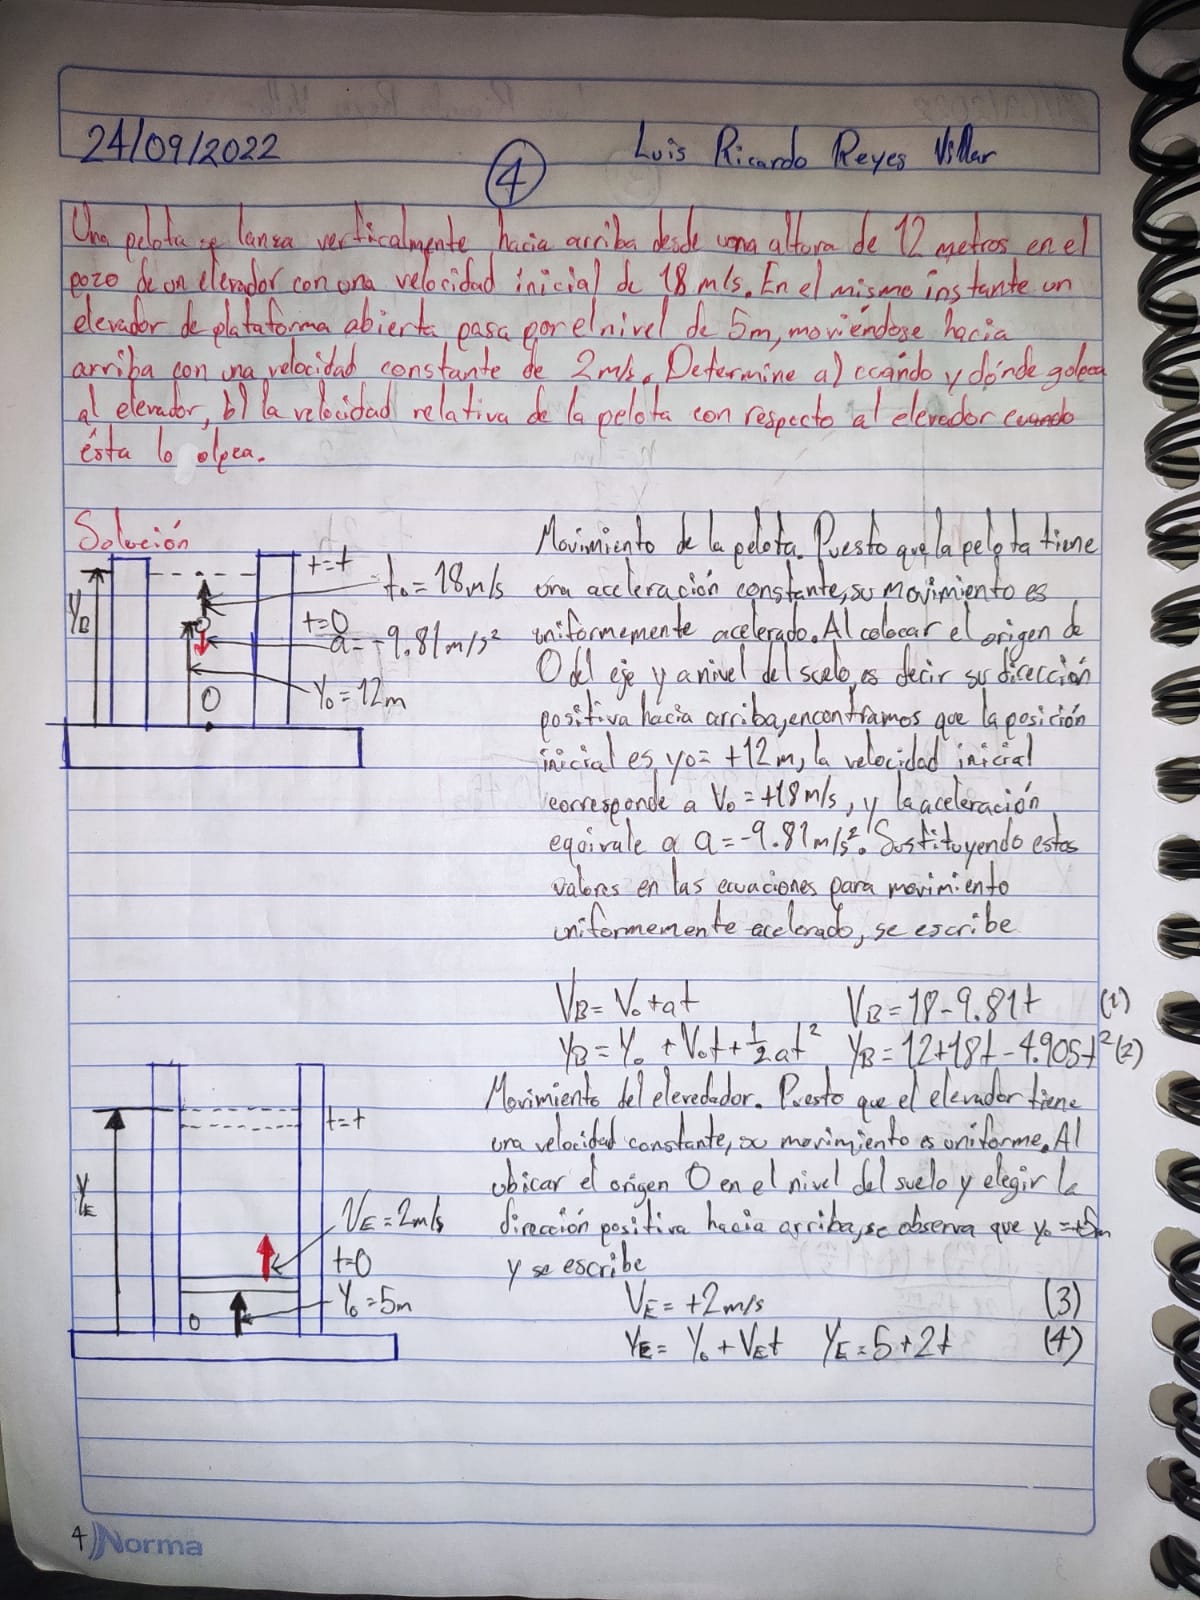 24/09/2022
Luis Ricardo Reyes Villar
4
Una pelota se lanza verticalmente hacia arriba desde una altura de 12 metros en el
pozo de un elevador con una velocidad inicial de 18 m/s. En el mismo instante un
elevador de plataforma abierta pasa por el nivel de 5m, moviéndose hacia
arriba con una velocidad constante de 2m/s. Determine a) cuándo y dónde golpea
al elevador, b) la velocidad relativa de la pelota con respecto al elevador cuando
ésta lo olpea.
Solución
YB
t=t
to = 18m/s
t=0
a = -9.81m/s²
Yo = 12m
O
Movimiento de la pelota. Puesto que la pelota tiene
una aceleración constante, su movimiento es
uniformemente acelerado. Al colocar el origen de
O del eje y a nivel del suelo, es decir su dirección
positiva hacia arriba, encontramos que la posición
inicial es yo= +12m, la velocidad inicial
corresponde a Vo = +18m/s, y la aceleración
equivale a a = -9.81m/s². Sustituyendo estos
valores en las ecuaciones para movimiento
uniformemente acelerado, se escribe
VB = Vo + at VB = 18 - 9.81t (1)
YB = Yo + Vot + 1/2 at² YB = 12+18t - 4.905t² (2)
YE
t=t
VE = 2m/s
t=0
Yo = 5m
O
Movimiento del elevedador. Puesto que el elevador tiene
una velocidad constante, su movimiento es uniforme. Al
ubicar el origen O en el nivel del suelo y elegir la
dirección positiva hacia arriba, se observa que yo = +5m
y se escribe
VE = +2m/s (3)
YE = Yo + VEt YE = 5+2t (4)
4 Norma